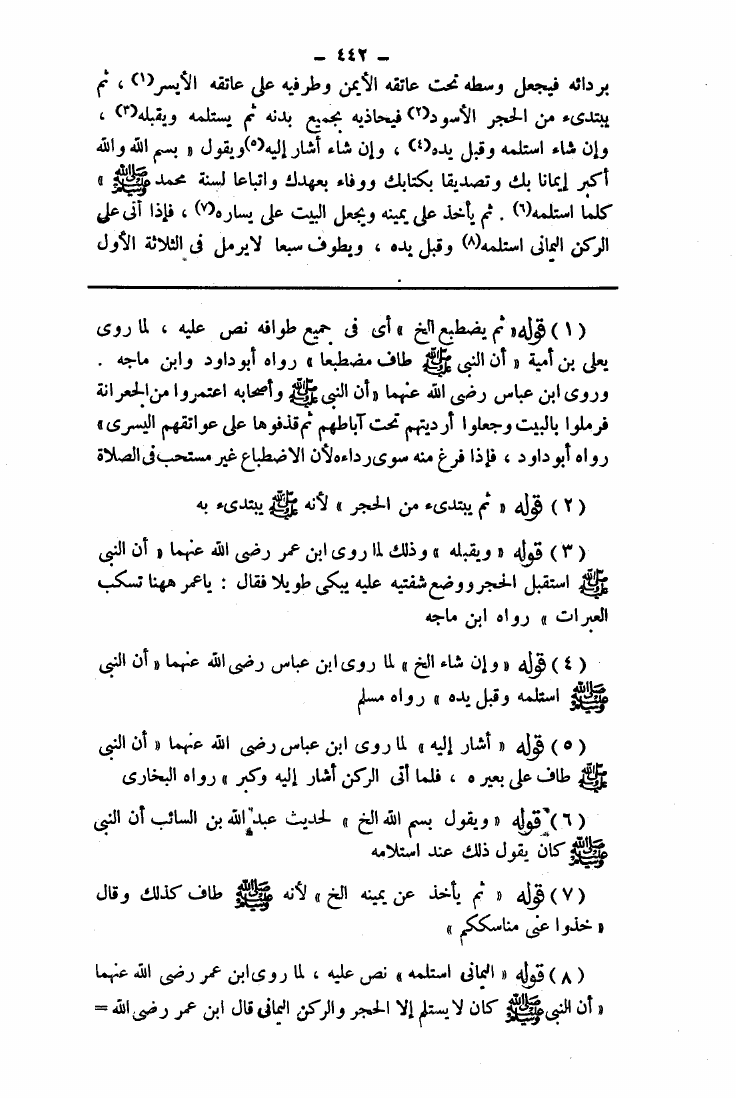 — ٤٤٢ —
بردائه فيجعل وسطه تحت عاتقه الأيمن وطرفيه على عاتقه الأيسر(١) ، ثم
يبتدىء من الحجر الأسود(٢) فيحاذيه بجميع بدنه ثم يستلمه ويقبله(٣) ،
وإن شاء استلمه وقبل يده(٤) ، وإن شاء أشار إليه(٥) ويقول « بسم الله والله
أكبر إيمانا بك وتصديقا بكتابك ووفاء بعهدك واتباعا لسنة محمد ﷺ »
كلما استلمه(٦) . ثم يأخذ على يمينه ويجعل البيت على يساره(٧) ، فإذا أتى على
الركن اليمانى استلمه(٨) وقبل يده ، ويطوف سبعا لايرمل فى الثلاثة الأول
(١) قوله « ثم يضطبع الخ » أى فى جميع طوافه نص عليه ، لما روى
يعلى بن أمية « أن النبي ﷺ طاف مضطبعا » رواه أبو داود وابن ماجه .
وروى ابن عباس رضى الله عنهما « أن النبى ﷺ وأصحابه اعتمروا من الجعرانة
فرملوا بالبيت وجعلوا أرديتهم تحت آباطهم ثم قذفوها على عواتقهم اليسرى »
رواه أبو داود ، فإذا فرغ منه سوى رداءه لأن الاضطباع غير مستحب فى الصلاة
(٢) قوله « ثم يبتدىء من الحجر » لأنه ﷺ يبتدىء به
(٣) قوله « ويقبله » وذلك لما روى ابن عمر رضى الله عنهما « أن النبي
ﷺ استقبل الحجر ووضع شفتيه عليه يبكى طويلا فقال : ياعمر ههنا تسكب
العبرات » رواه ابن ماجه
(٤) قوله « وإن شاء الخ » لما روى ابن عباس رضى الله عنهما « أن النبى
ﷺ استلمه وقبل يده » رواه مسلم
(٥) قوله « أشار إليه » لما روى ابن عباس رضى الله عنهما « أن النبي
ﷺ طاف على بعيره ، فلما أتى الركن أشار إليه وكبر » رواه البخارى
(٦) قوله « ويقول بسم الله الخ » لحديث عبد الله بن السائب أن النبي
ﷺ كان يقول ذلك عند استلامه
(٧) قوله « ثم يأخذ عن يمينه الخ » لأنه ﷺ طاف كذلك وقال
« خذوا عنى مناسككم »
(٨) قوله « اليمانى استلمه » نص عليه ، لما روى ابن عمر رضى الله عنهما
« أن النبى ﷺ كان لا يستلم إلا الحجر والركن اليمانى قال ابن عمر رضى الله =